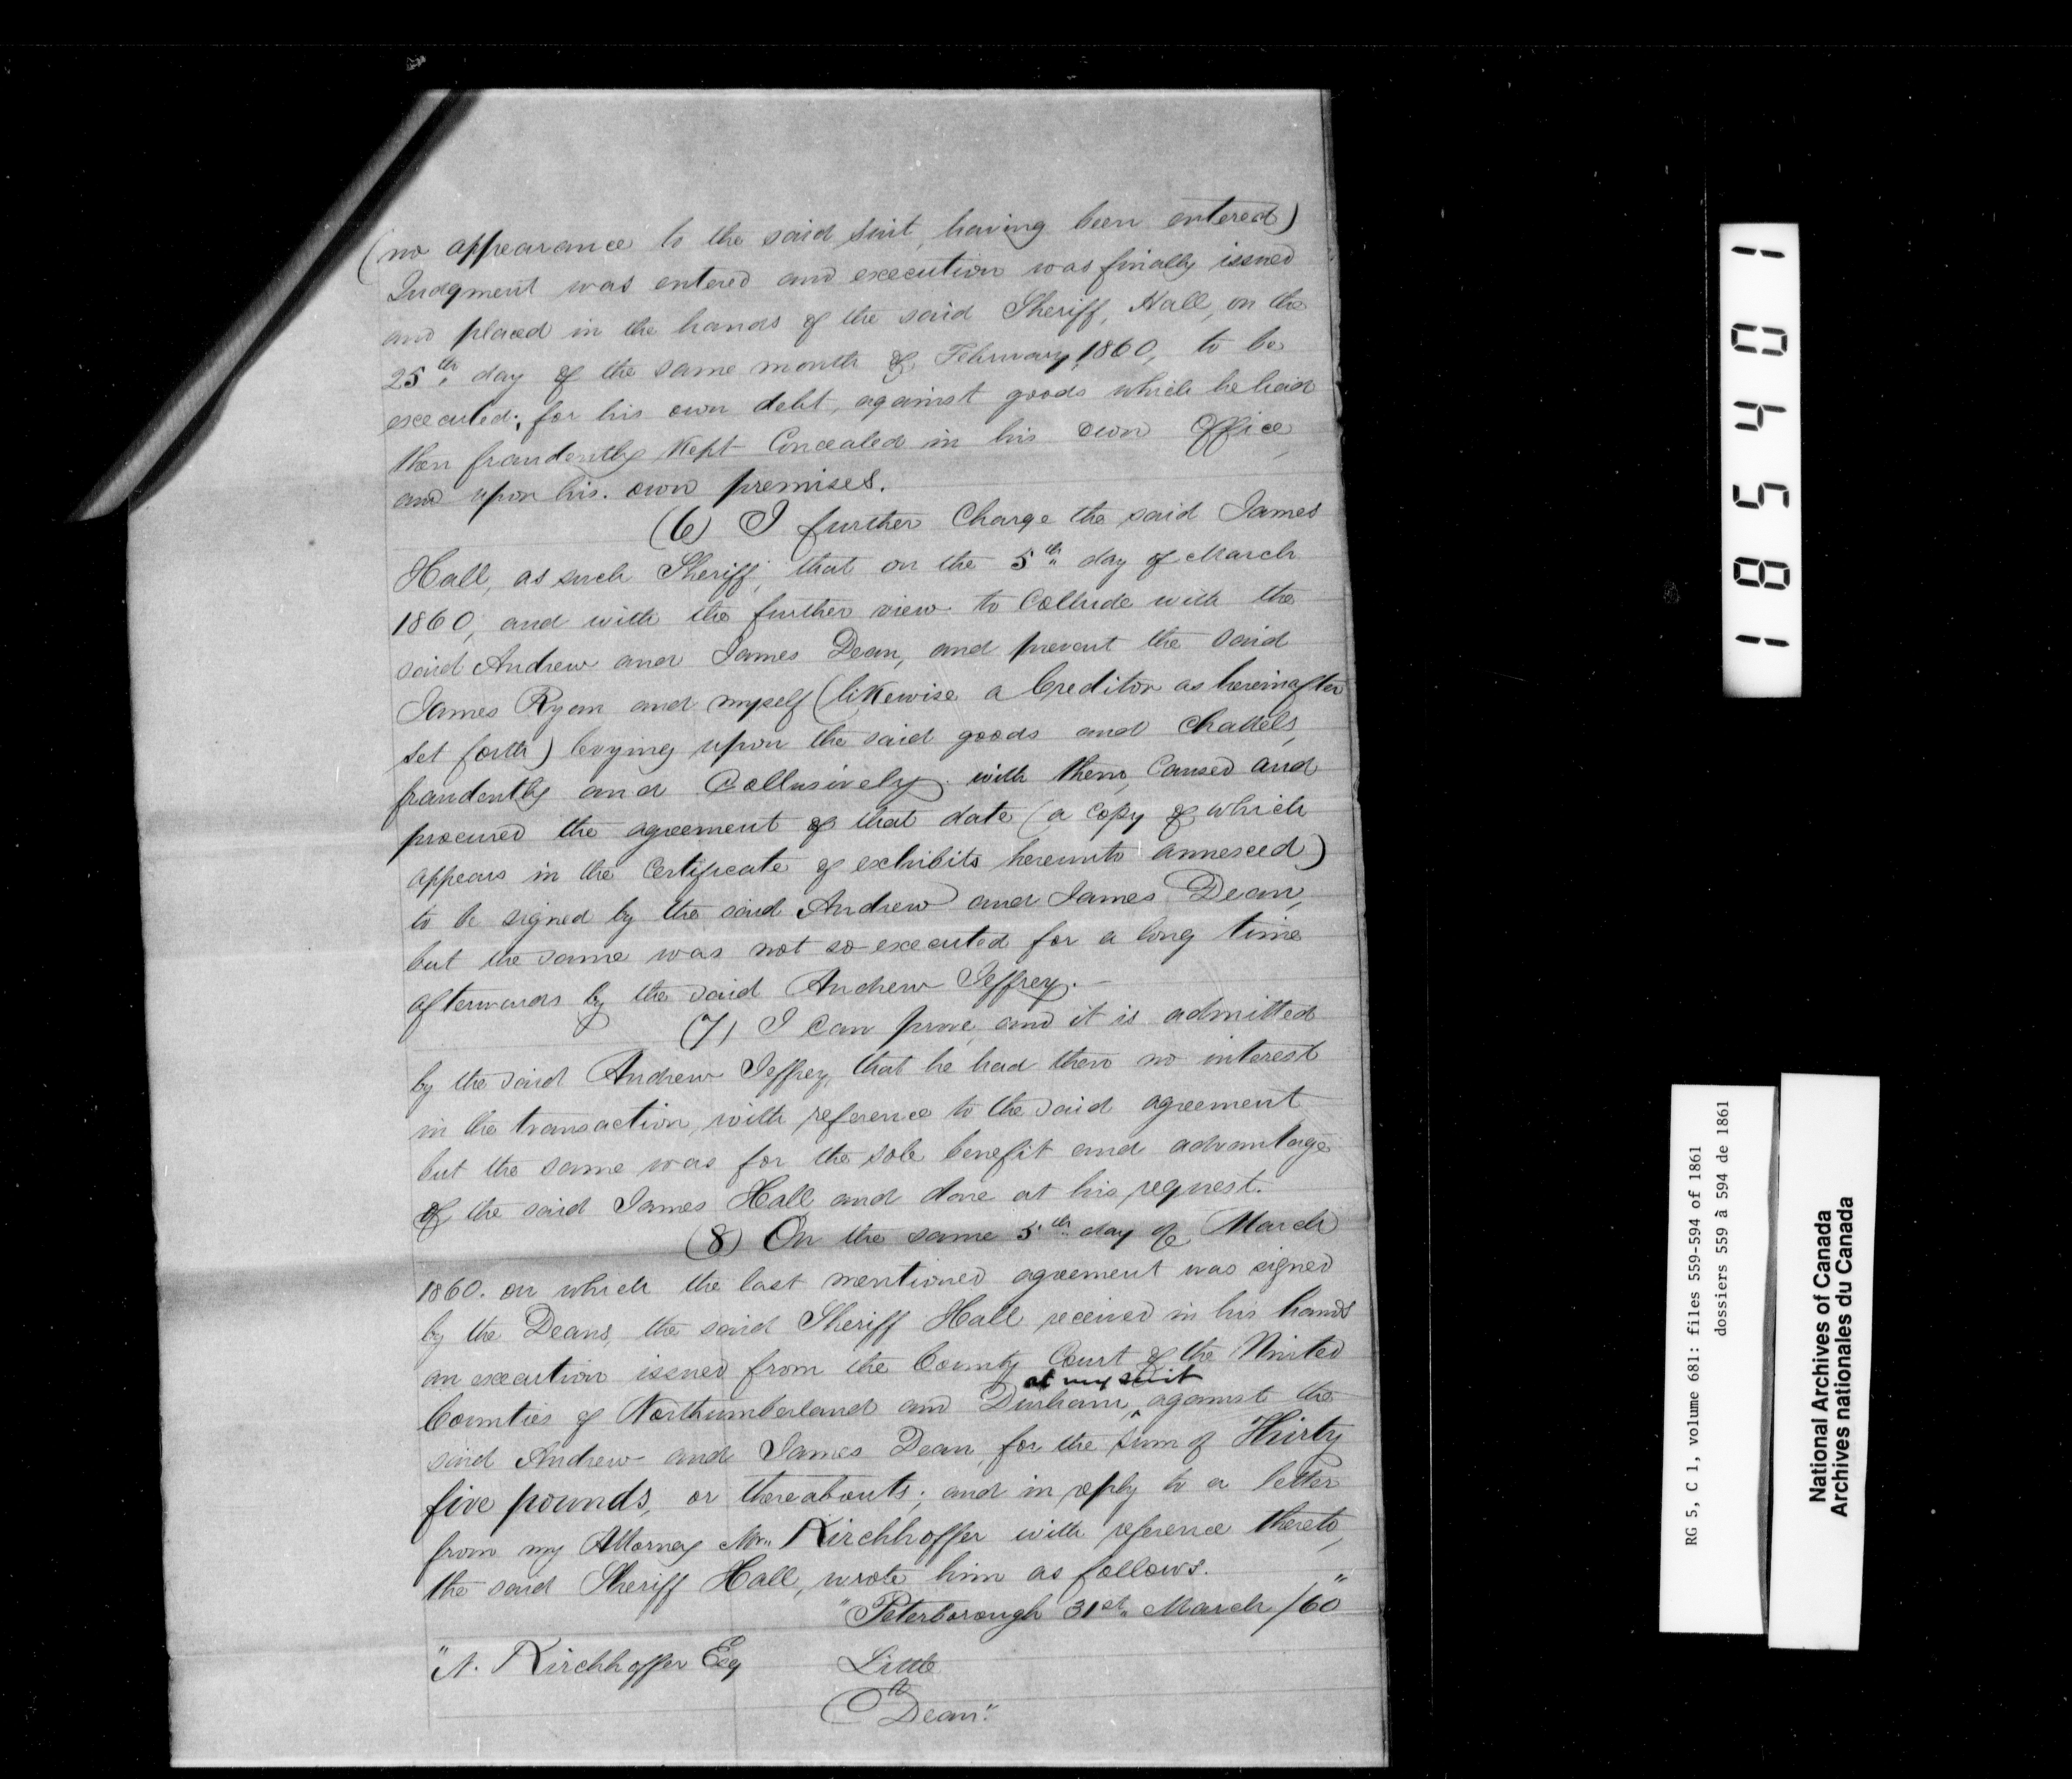 (no appearance to the said suit, having been entered)
Judgment was entered and execution was finally issued
and placed in the hands of the said Sheriff, Hall, on the
25th day of the same month of February, 1860, to be
executed, for his own debt, against goods which he had
then fraudently kept Concealed in his own Office,
and upon his own premises.
(6) I further Charge the said James
Hall, as such Sheriff, that on the 5th day of March
1860, and with the further view to Collude with the
said Andrew and James Dean, and prevent the said
James Ryan and myself (likewise a Creditor as hereinafter
set forth) levying upon the said goods and Chattels,
fraudently and Collusively with them, Caused and
procured the agreement of that date (a Copy of which
appears in the Certificate of exhibits hereunto annexed)
to be signed by the said Andrew and James Dean,
but the same was not so executed for a long time
afterwards by the said Andrew Jeffrey. -
(7) I Can prove, and it is admitted
by the said Andrew Jeffrey, that he had then no interest
in the transaction, with reference to the said agreement
but the same was for the sole benefit and advantage
of the said James Hall and done at his request.
(8) On the same 5th day of March
1860. on which the last mentioned agreement was signed
by the Deans, the said Sheriff Hall received in his hands
an execution issued from the County Court of the United
at my suit
Counties of Northumberland and Durham ^ against the
said Andrew and James Dean, for the sum of Thirty
five pounds, or thereabouts; and in reply to a letter
from my Attorney Mr. Kirchhoffer with reference thereto,
the said Sheriff Hall, wrote him as follows.
"Peterborough 31st March /60"
"N. Kirchhoffer Esq
Little
Dean"
1 8 5 4 0 1
RG 5, C 1, volume 681: files 559-594 of 1861
dossiers 559 à 594 de 1861
National Archives of Canada
Archives nationales du Canada